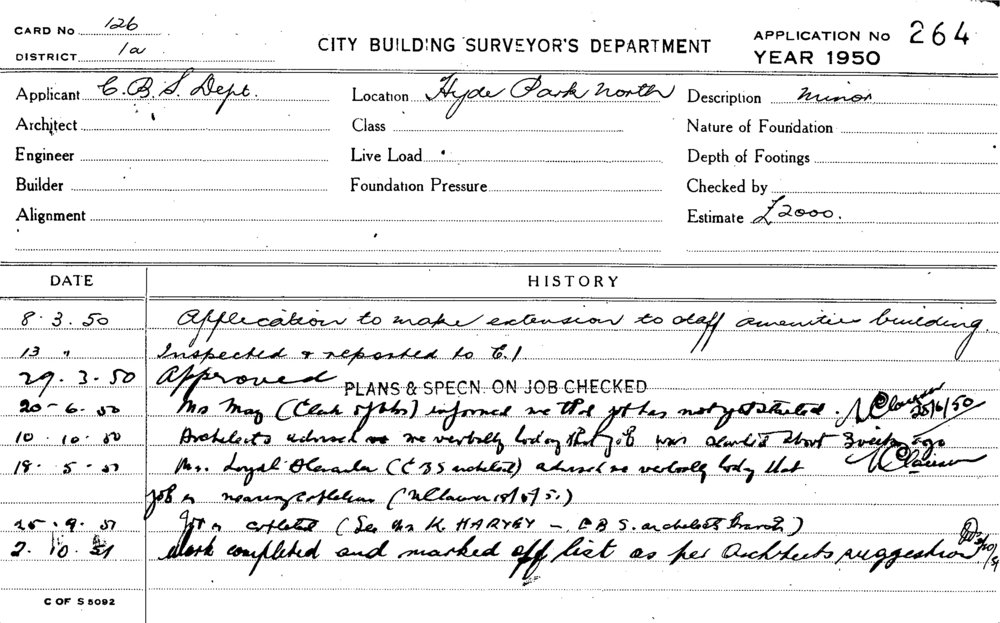 CARD No 126
DISTRICT 1a
CITY BUILDING SURVEYOR'S DEPARTMENT
APPLICATION No 264
YEAR 1950
Applicant C.B.S. Dept. Location Hyde Park North Description Minor
Architect Class Nature of Foundation
Engineer Live Load Depth of Footings
Builder Foundation Pressure Checked by
Alignment Estimate £2000.
DATE HISTORY
8.3.50 Application to make extension to staff amenities building.
13 " Inspected & reported to C.I.
29.3.50 Approved PLANS & SPECN. ON JOB CHECKED
20-6.50 (Clerk of Wks) informed me that job has not yet started. 25/6/50
10.10.50 Architects advised me verbally today that job was started about 3 weeks ago
18.5.51 Mr. (CBS architect) advised me verbally today that
job is nearing completion (N Clawson 18/5/51)
25.9.51 Job is completed (See Mr K. HARVEY - C B S. architects branch)
2.10.51 Work completed and marked off list as per Architects suggestion
C OF S 5092